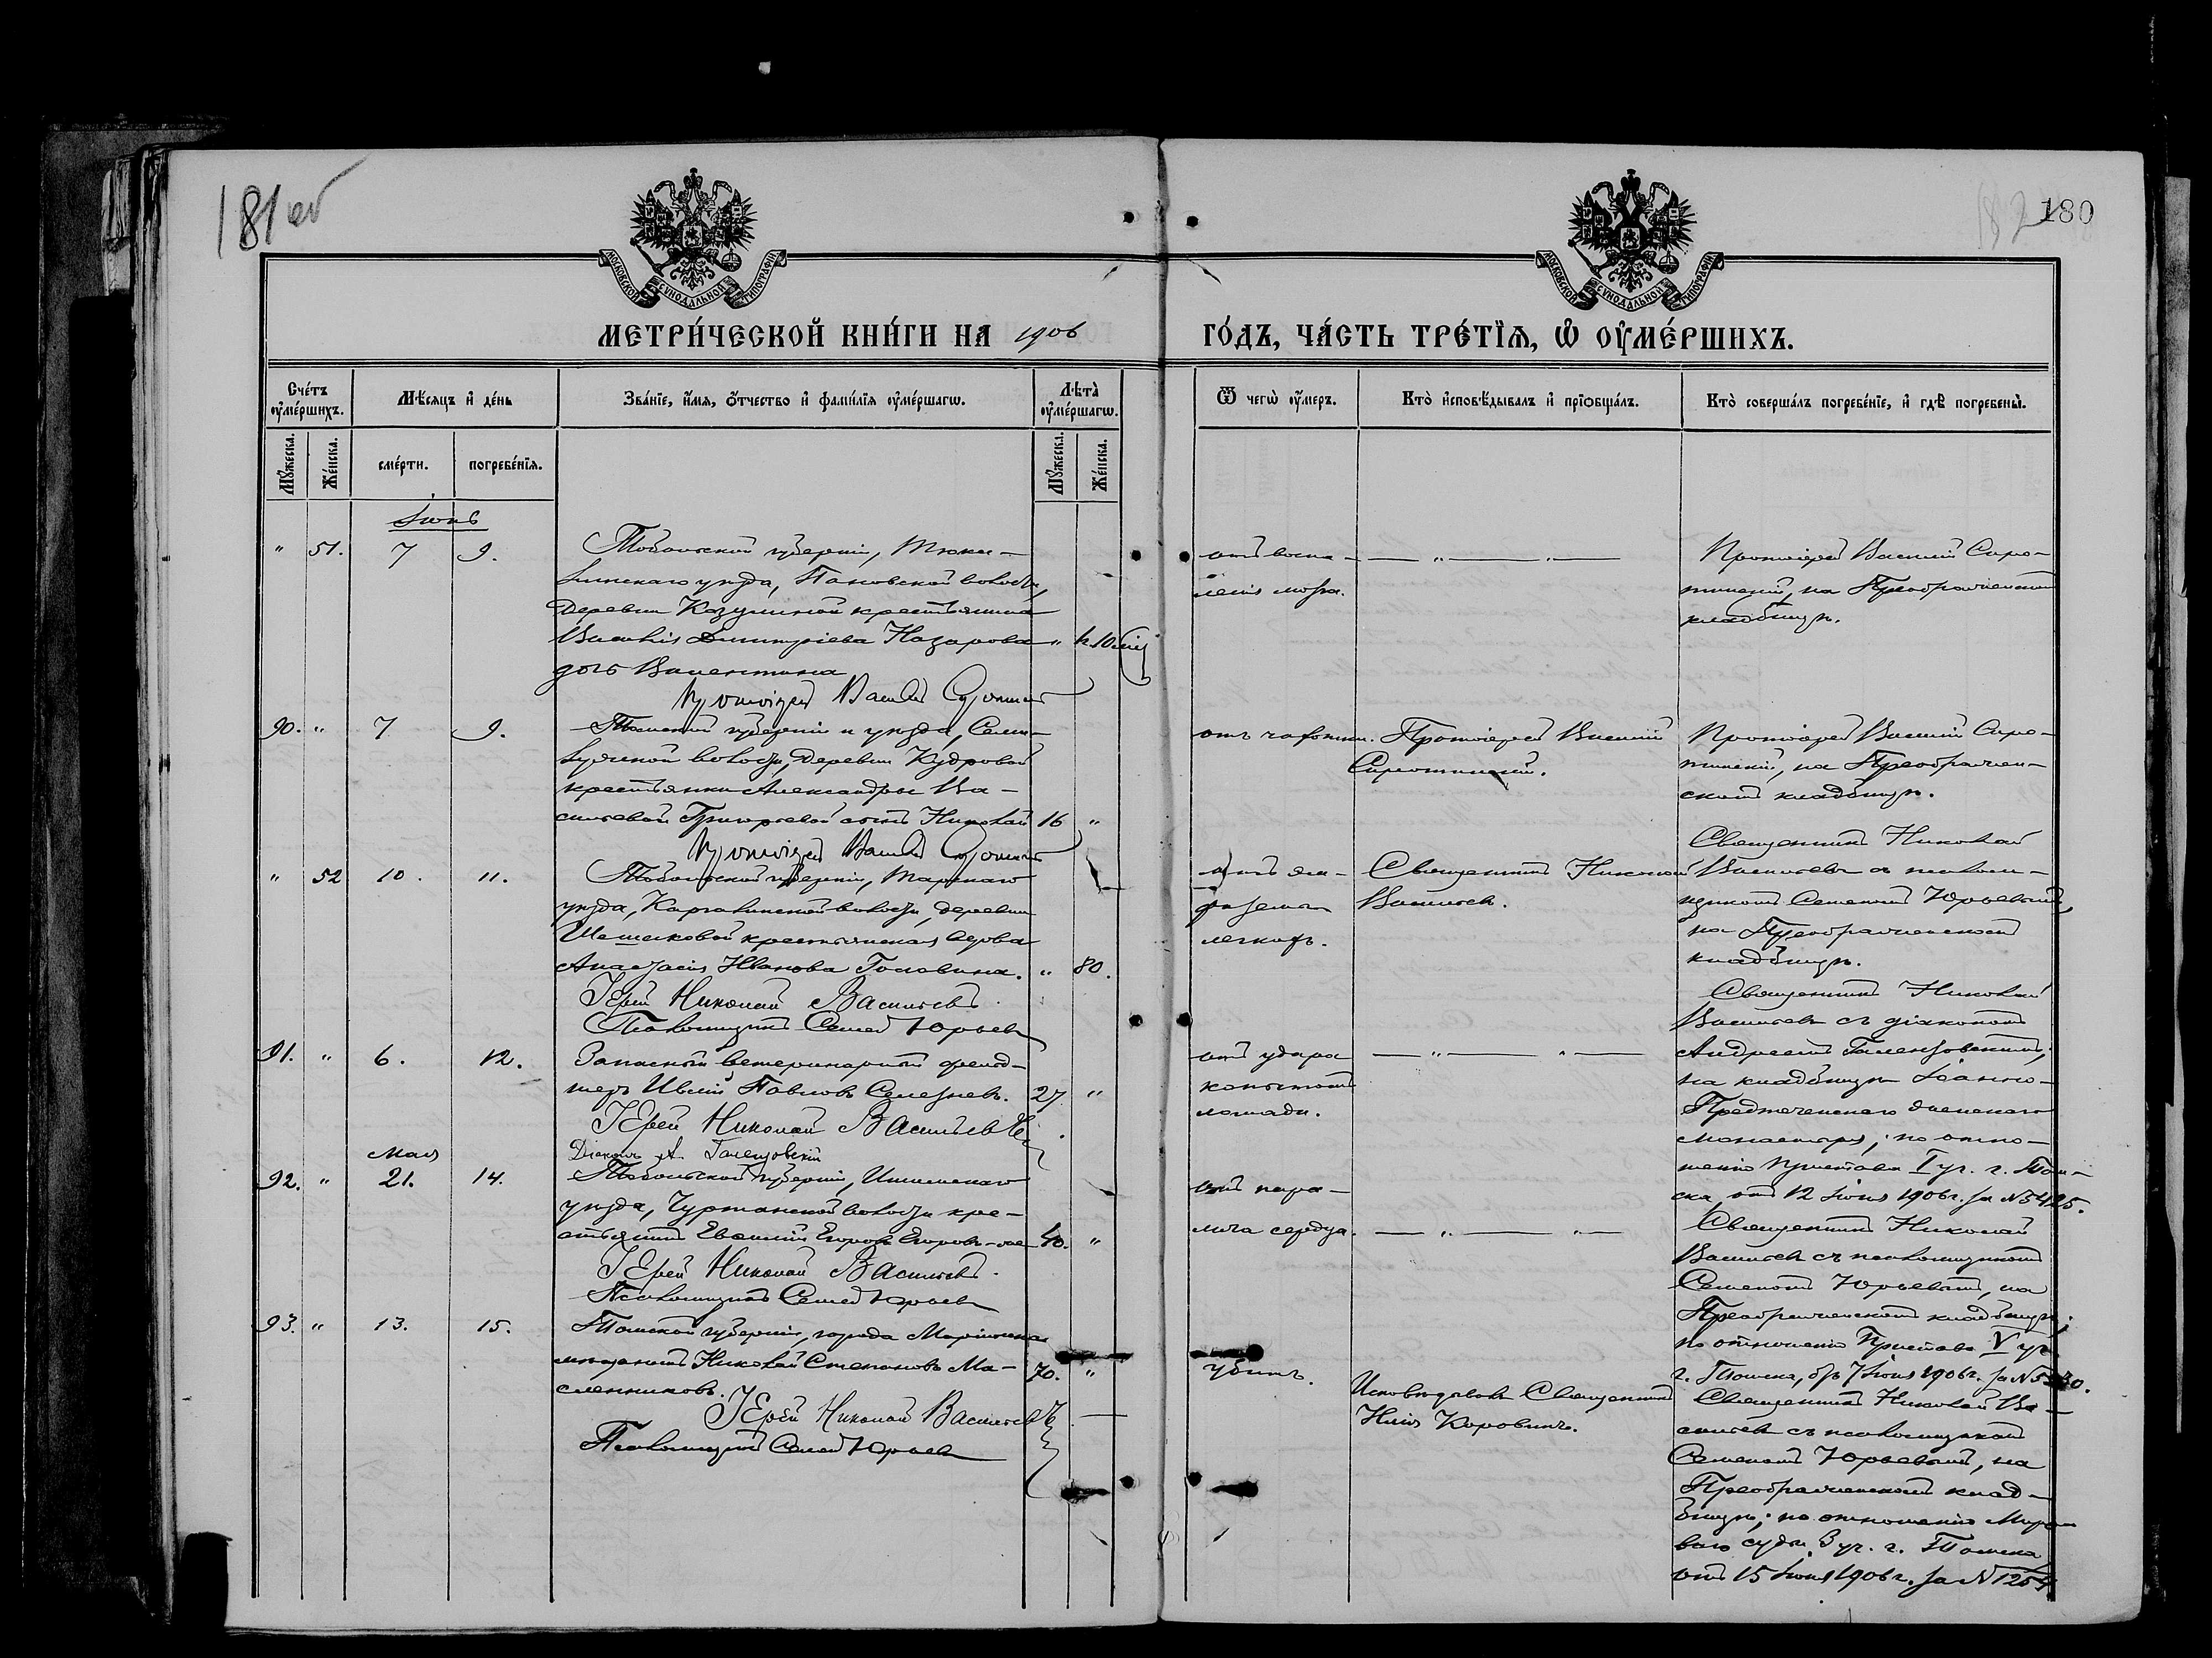 181 об
182
180
МОСКОВСКОЙ СѴНОДАЛЬНОЙ ТИПОГРАФІИ
МОСКОВСКОЙ СѴНОДАЛЬНОЙ ТИПОГРАФІИ
МЕТРИ́ЧЕСКОЙ КНИ́ГИ НА 1906
ГО́ДЪ, ЧА́СТЬ ТРЕ́ТЇѦ, Ѡ҆ ОУ҆МЕ́РШИХЪ.
Сче́тъ оу҆ме́ршихъ.
Мѣ́сяцъ и҆ де́нь
Зва́нїе, и҆́мя, ѻ҆́тчество и҆ фамн́лїя оу҆ме́ршагѡ.
Лѣта̀ оу҆ме́ршагѡ.
Ѿ чегѡ̀ оу҆́меръ.
Кто̀ и҆сповѣ́дывалъ и҆ прїѡбща́лъ.
Кто̀ соверша́лъ погребе́нїе, и҆ гдѣ̀ погребены̀.
Мꙋ́жеска.
Же́нска.
сме́рти.
погребе́нїя.
Мꙋ́жеска.
Же́нска.
Іюнь
" 51. 7 9.
Тобольской губерніи, Тюка-
линскаго уѣзда, Пановской волости,
деревни Козулиной крестьянина
Василія Димитріева Назарова " 10
дочь Валентина
Протоіерей Василій Сиротинскій
отъ воспа-
ленія мозга.
Протоіерей Василій Сиро-
тинскій, на Преображенскомъ
кладбищѣ.
90. " 7 9.
Томской губерніи и уѣзда, Семи-
лужной волости, деревни Кудровой
крестьянки Александры Ва-
сильевой Григорьевой сынъ Николай 16 "
Протоіерей Василій Сиротинскій
отъ чахотки.
Протоіерей Василій
Сиротинскій.
Протоіерей Василій Сиро-
тинскій, на Преображен-
скомъ кладбищѣ.
" 52 10. 11.
Тобольской губерніи, Тарскаго
уѣзда, Карталинской волости, деревни
крестьянская вдова
Анастасія Иванова Головина. " 80.
Іерей Николай Васильевъ
Псаломщикъ Семенъ Юрьевъ
отъ эм-
физемы
легкихъ.
Священникъ Николай
Васильевъ.
Священникъ Николай
Васильевъ съ псалом-
щикомъ Семеномъ Юрьевымъ,
на Преображенскомъ
кладбищѣ.
91. " 6. 12.
Запасный ветеринарный фельд-
шеръ Павловъ Селезневъ. 27 "
Іерей Николай Васильевъ
Діаконъ А. Галензовскій
отъ удара
копытомъ
лошади.
Священникъ Николай
Васильевъ съ діакономъ
Андреемъ Галензовскимъ,
на кладбищѣ Іоанно-
Предтеченскаго женскаго
монастыря; по отно-
шенію Пристава I уч. г. Том-
ска отъ 12 Іюня 1906 г. за № 5425.
Мая
92. " 21. 14.
Тобольской губерніи, Ишимскаго
уѣзда, Чуртанской волости кре-
стьянинъ Егоровъ 40. "
Іерей Николай Васильевъ.
Псаломщикъ Семенъ Юрьевъ
отъ пара-
лича сердца.
Священникъ Николай
Васильевъ съ псаломщикомъ
Семеномъ Юрьевымъ, на
Преображенскомъ кладбищѣ;
по отношенію Пристава V уч.
г. Томска, 7 Іюня 1906 г. за №
93. " 13. 15.
Томской губерніи, города Маріинска
мѣщанинъ Николай Степановъ Ма- 70. "
сленниковъ.
Іерей Николай Васильевъ
Псаломщикъ Семенъ Юрьевъ
убитъ.
Исповѣдывалъ Священникъ
Коровинъ.
Священникъ Николай Ва-
сильевъ съ псаломщикомъ
Семеномъ Юрьевымъ, на
Преображенскомъ клад-
бищѣ; по отношенію Миро-
ваго судьи 3 уч. г. Томска
отъ 15 Іюня 1906 г. за № 1254